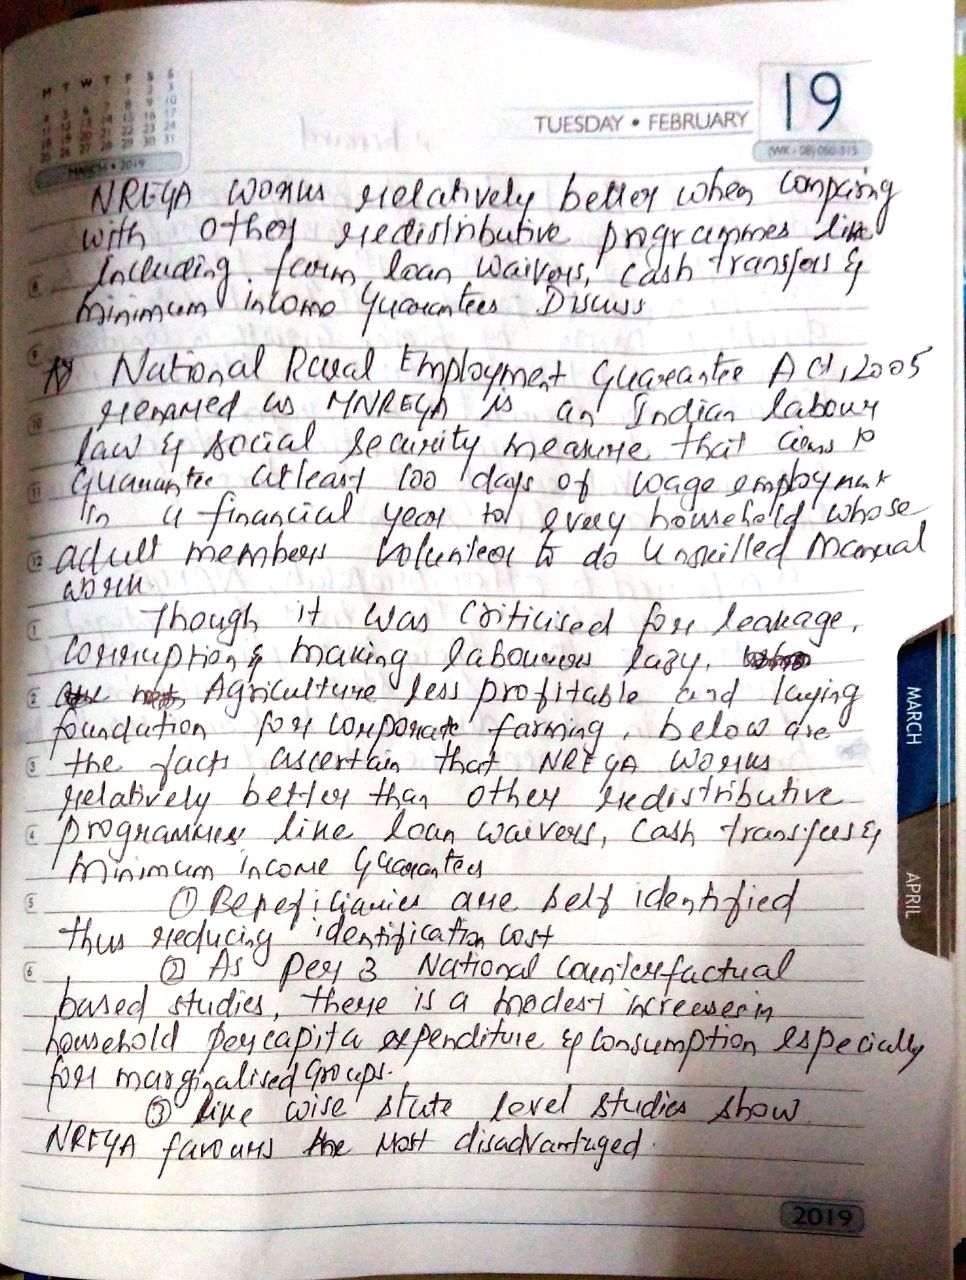 M T W T F S S
1 2 3
4 5 6 7 8 9 10
11 12 13 14 15 16 17
18 19 20 21 22 23 24
25 26 27 28 29 30 31
MARCH • 2019
TUESDAY • FEBRUARY
19
(WK - 08) 050-315
NREGA works relatively better when comparing
with other redistributive programmes like
including farm loan waivers, cash transfers &
minimum income guarantees Discuss
A) National Rural Employment Guarantee Act, 2005
renamed as MNREGA is an Indian labour
law & social security measure that aims to
guarantee atleast 100 days of wage employment
in a financial year to every household whose
adult members volunteer to do unskilled manual
work
Though it was criticised for leakage,
corruption & making labourers lazy,
Agriculture less profitable and laying
foundation for corporate farming, below are
the facts ascertain that NREGA works
relatively better than other redistributive
programmes like loan waivers, cash transfers &
minimum income guarantees
① Beneficiaries are self identified
thus reducing identification cost
② As per 3 National counterfactual
based studies, there is a modest increase in
household per capita expenditure & consumption especially
for marginalised groups.
③ like wise state level studies show
NREGA favours the most disadvantaged.
8
9
10
11
12
1
2
3
4
5
6
MARCH
APRIL
2019